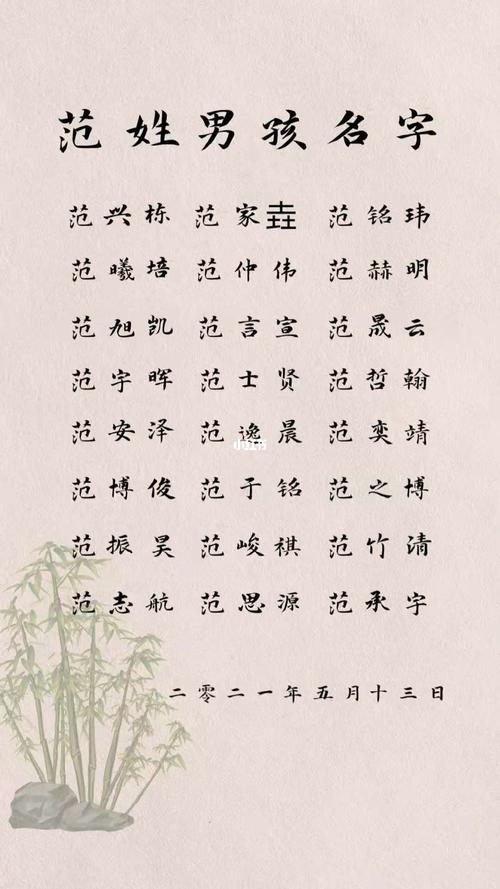 范姓男孩名字
范兴栋 范家壵 范铭玮
范曦培 范仲伟 范赫明
范旭凯 范言宣 范晟云
范宇晖 范士贤 范哲翰
范安泽 范逸晨 范奕靖
小红书
范博俊 范于铭 范之博
范振昊 范峻祺 范竹清
范志航 范思源 范承宇
二零二一年五月十三日